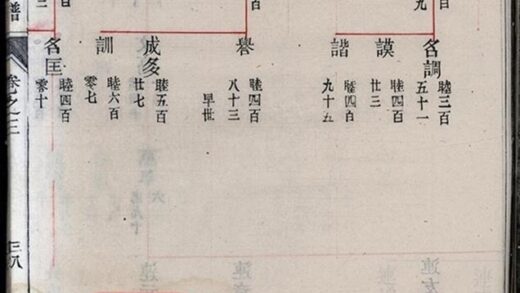 名調
睦三百
五十一
謨
睦四百
廿三
諧
睦四百
九十五
譽
睦四百
八十三
早世
成多
睦五百
廿七
訓
睦六百
零七
名匡
睦四百
零十
譜
卷之三
三八